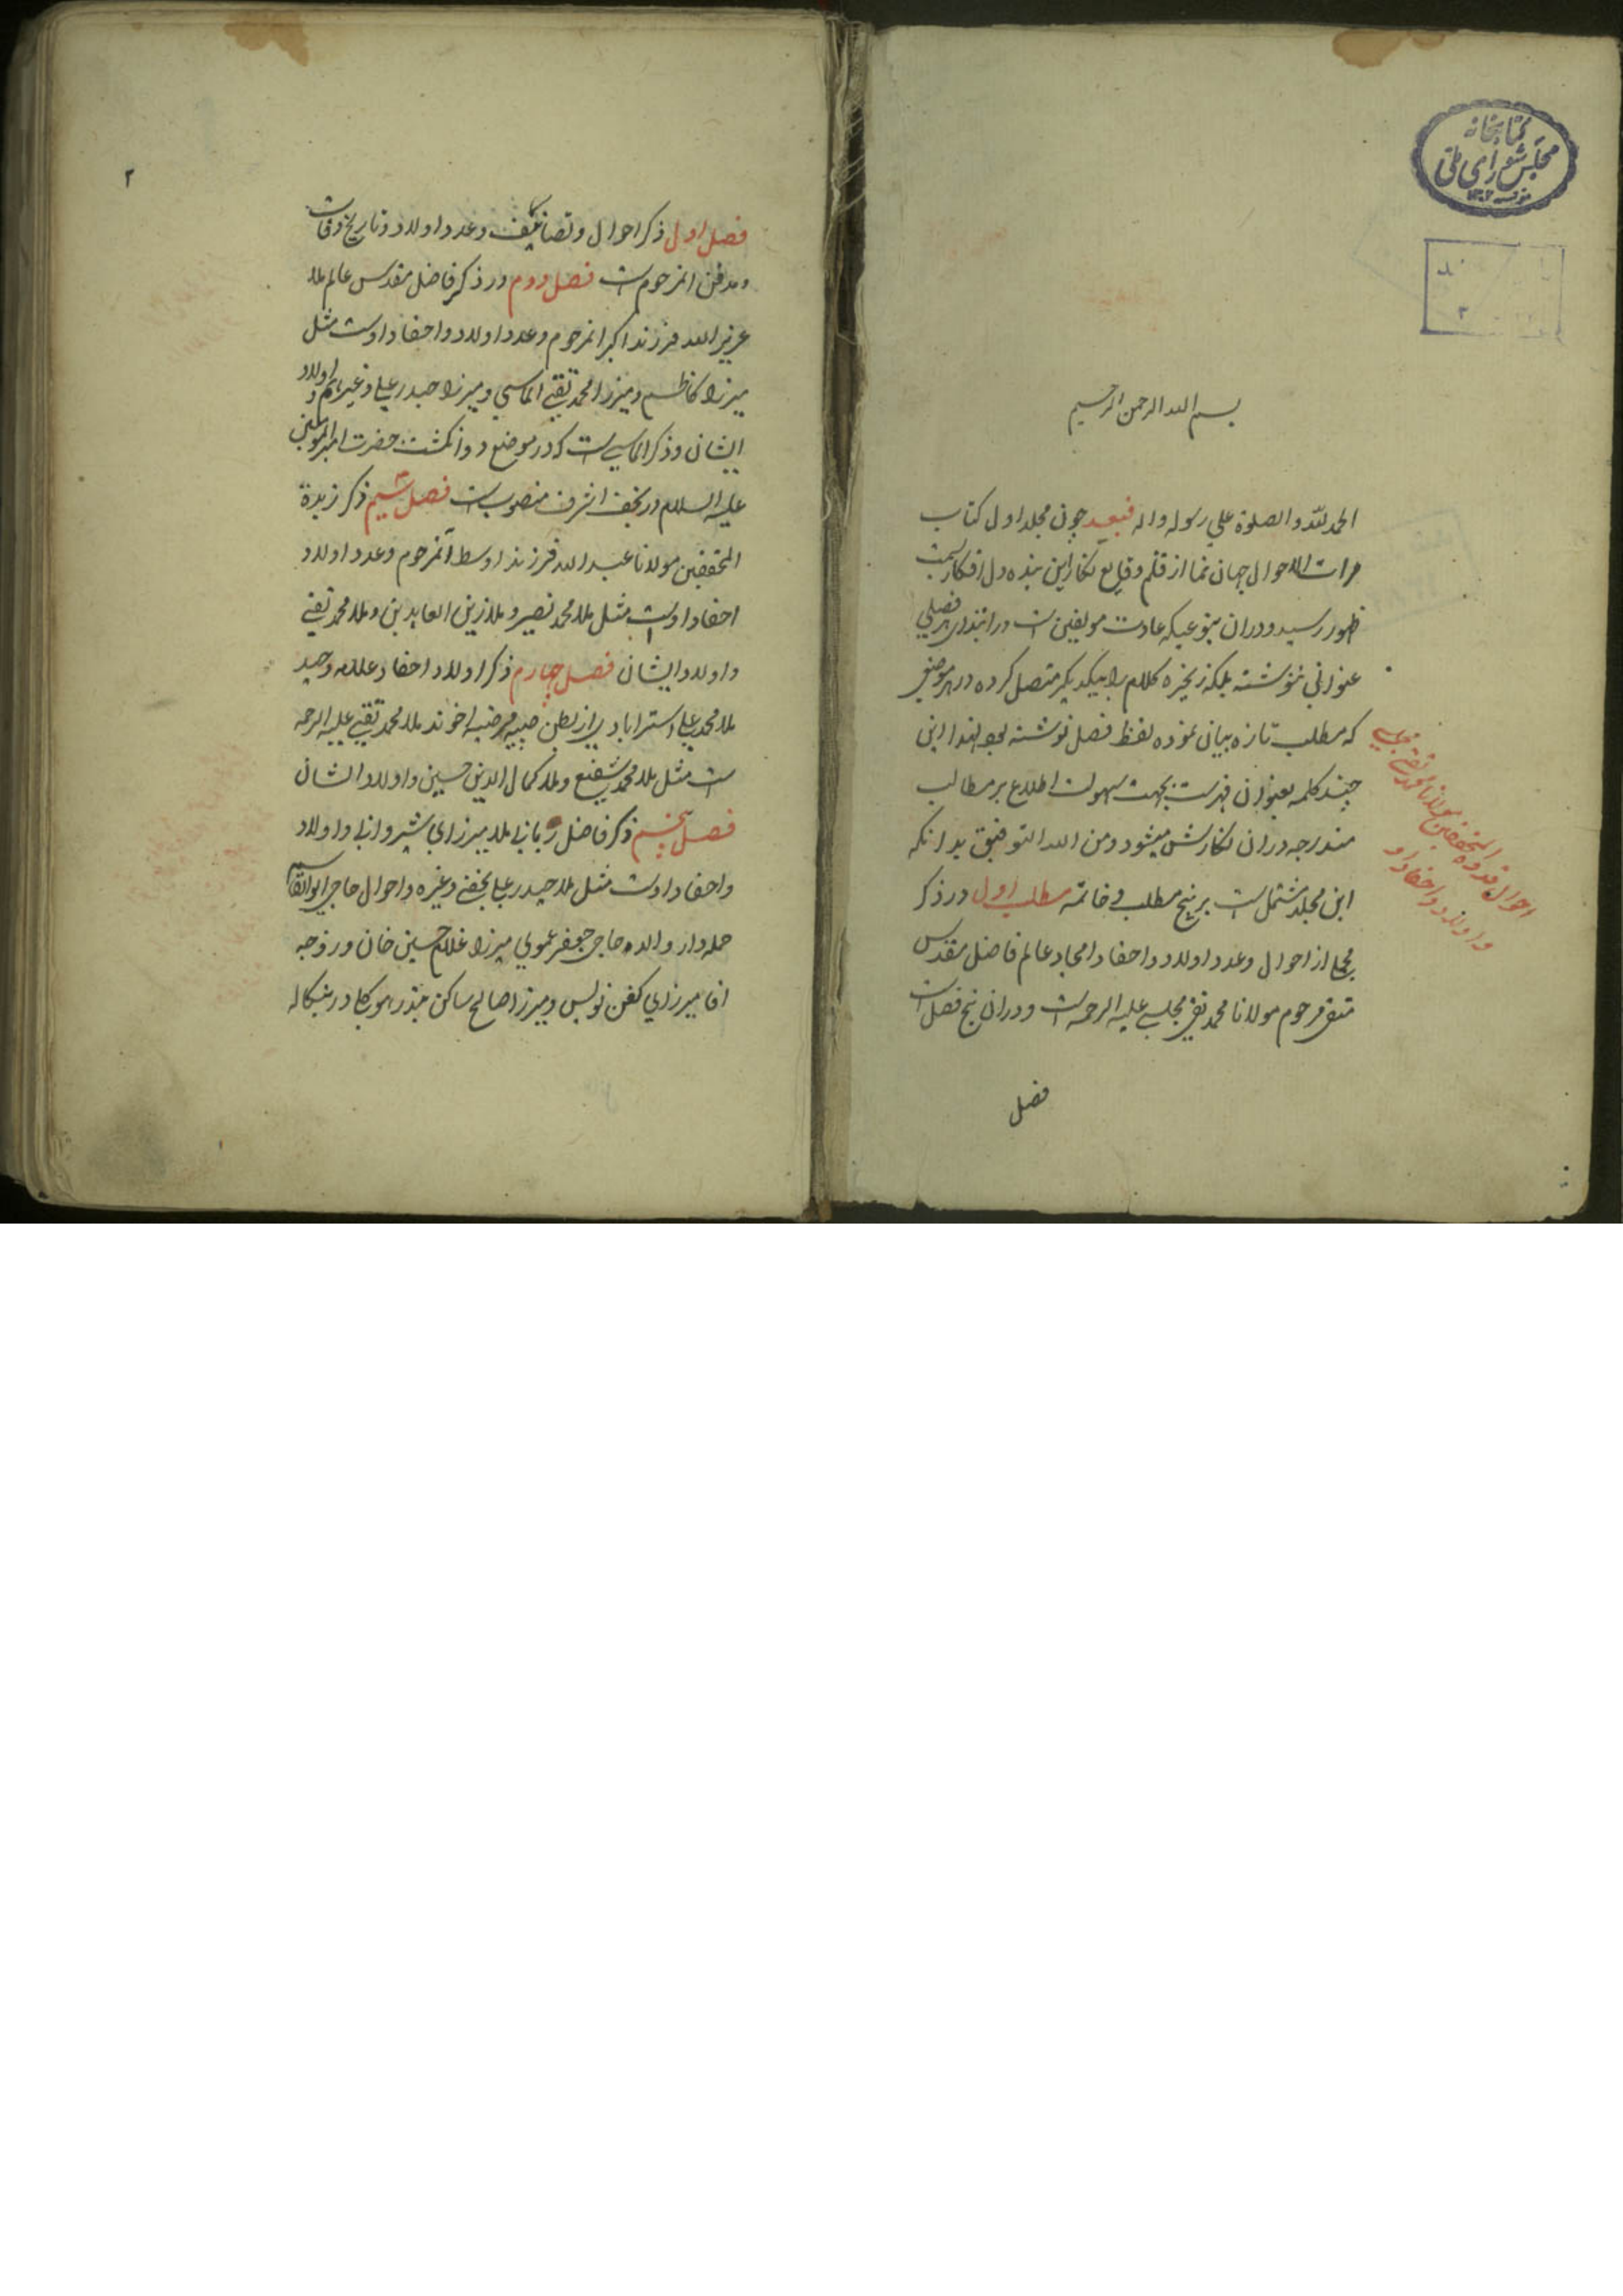 کتابخانه
مجلس شورای ملی
بسم الله الرحمن الرحیم
الحمد لله و الصلوة علی رسوله و اله فبعد چون مجلد اول کتاب
مرات الاحوال جهان نما از قلم وقایع نگار این بنده دل افکار سمت
ظهور رسید و دران بنوعیکه عادت مولفین است در ابتدای هر فصلی
عنوانی ننوشته بلکه زنجیره کلام را بیکدیگر متصل کرده در هر موضعی
که مطلب تازه بیان نموده لفظ فصل نوشته بود لهذا این
چند کلمه بعنوان فهرست بجهت سهولت اطلاع بر مطالب
مندرجه دران نگارش میشود و من الله التوفیق بدانکه
این مجلد مشتمل است بر پنج مطلب و خاتمه مطلب اول در ذکر
مجملی از احوال و عدد اولاد و احفاد امجاد عالم فاضل مقدس
متقی مرحوم مولانا محمد تقی مجلسی علیه الرحمه است و دران پنج فصل است
فصل
احوال قدوة المحققین مولانا محمد تقی مجلسی
و اولاد و احفاد او
۲
فصل اول ذکر احوال و تصانیف و عدد اولاد و تاریخ وفات
و مدفن انمرحوم است فصل دوم در ذکر فاضل مقدس عالم ملا
عزیز الله فرزند اکبر انمرحوم و عدد اولاد و احفاد اوست مثل
میرزا کاظم و میرزا محمد تقی الماسی و میرزا حیدر علی و غیرهم و اولاد
ایشان و ذکر الماسی است که در موضع دو انگشت حضرت امیر المومنین
علیه السلام در نجف اشرف منصوب است فصل سیم ذکر زبدة
المحققین مولانا عبد الله فرزند اوسط آنمرحوم و عدد اولاد
احفاد اوست مثل ملا محمد نصیر و ملا زین العابدین و ملا محمد تقی
و اولاد ایشان فصل چهارم ذکر اولاد و احفاد علامه وحید
ملا محمد علی استرابادی از بطن صبیه مرضیه اخوند ملا محمد تقی علیه الرحمه
است مثل ملا محمد شفیع و ملا کمال الدین حسین و اولاد ایشان
فصل پنجم ذکر فاضل ربانی ملا میرزای شیروانی و اولاد
و احفاد اوست مثل ملا حیدر علی نجفی و غیره و احوال حاجی ابو القاسم
حمله دار و والده حاجی جعفر عموی میرزا غلام حسین خان و زوجه
اقا میرزای کفن نویس و میرزا صالح ساکن بندر هوگلی در بنگاله